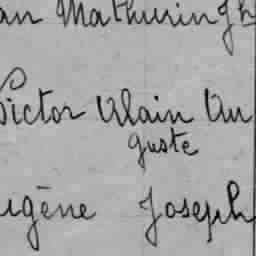 an Mathurin Jh
Victor Alain Au
guste
ugène Joseph